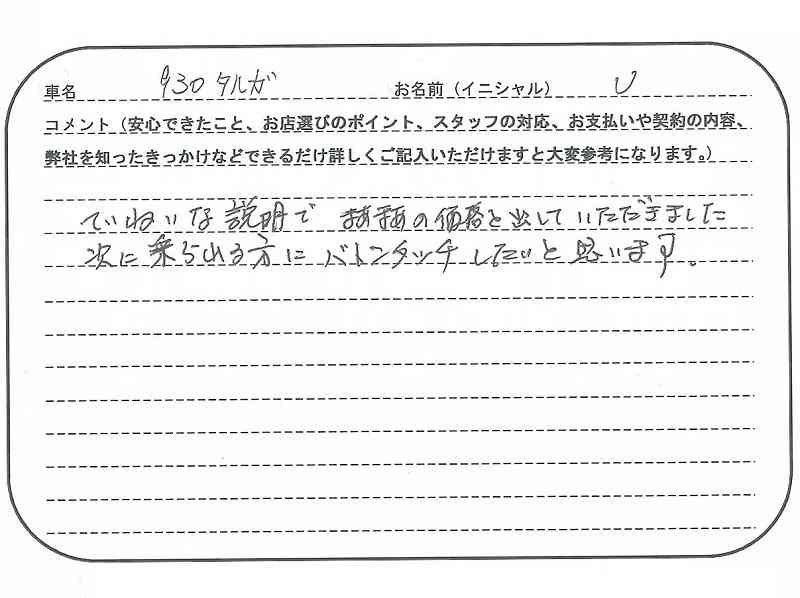 車名 930 タルガ お名前（イニシャル） U
コメント（安心できたこと、お店選びのポイント、スタッフの対応、お支払いや契約の内容、
弊社を知ったきっかけなどできるだけ詳しくご記入いただけますと大変参考になります。）
ていねいな説明で まあまあの価格を出していただきました
次に乗られる方にバトンタッチしたいと思います。